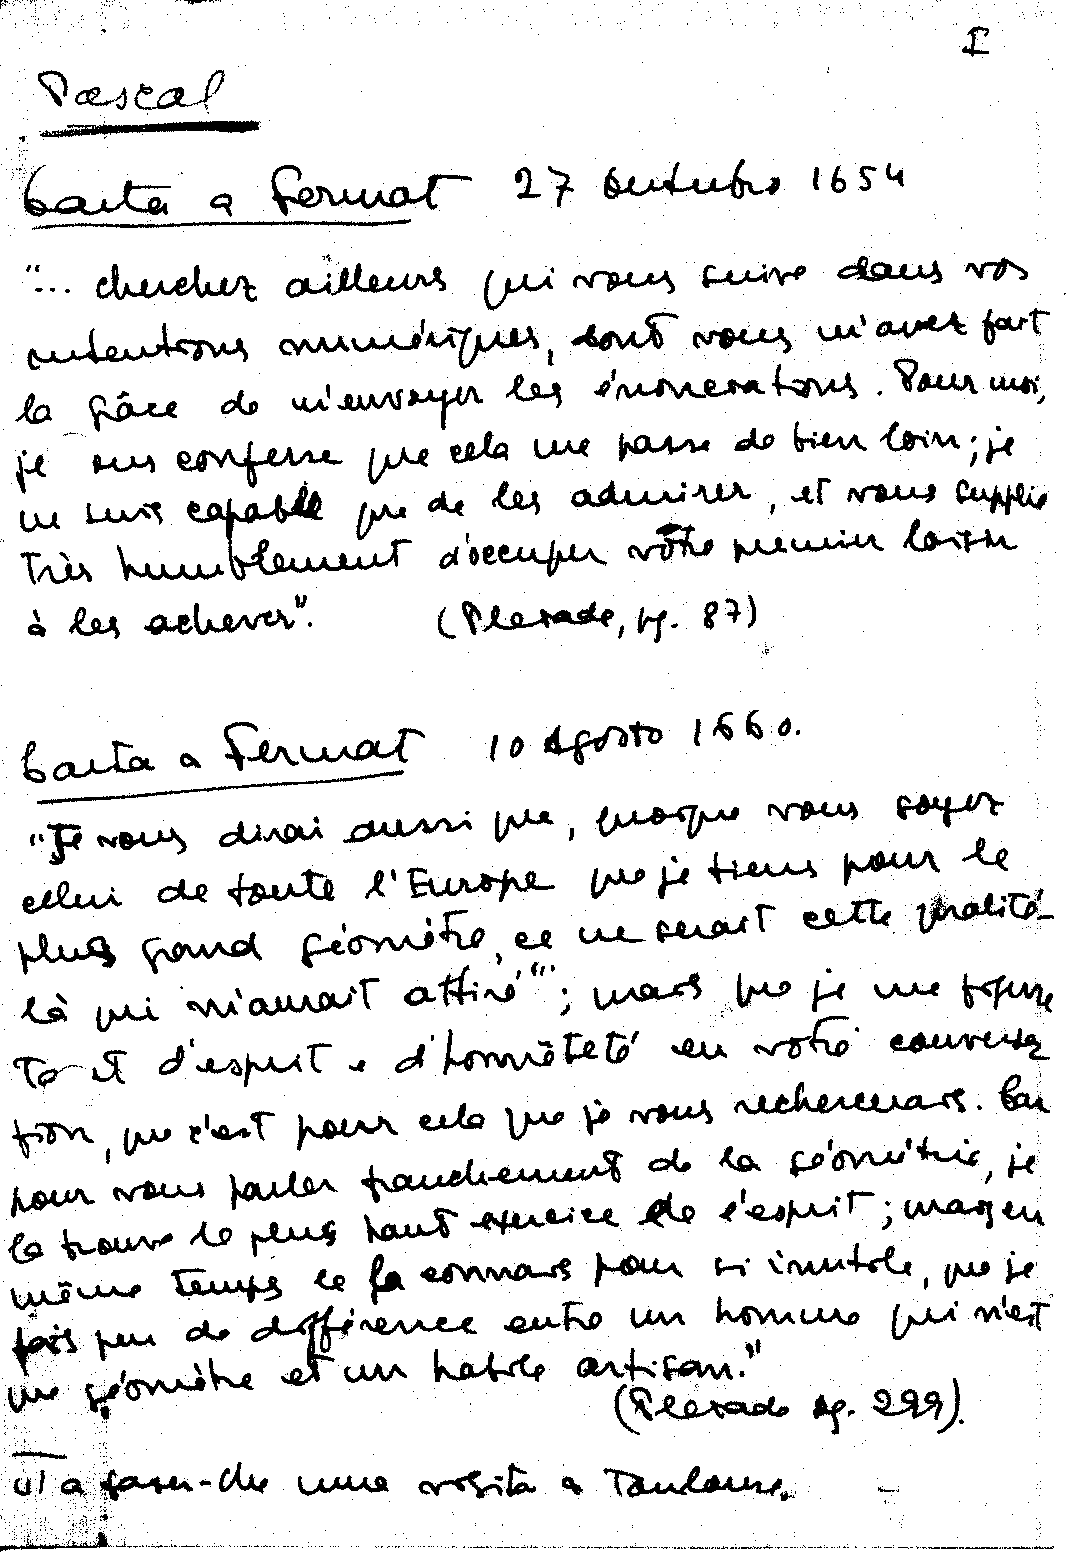 I
Pascal
Carta a Fermat 27 Outubro 1654
"... cherchez ailleurs qui vous suive dans vos
intentions numériques, dont vous m'avez fait
la grâce de m'envoyer les énonciations. Pour moi,
je vous confesse que cela me passe de bien loin; je
ne suis capable que de les admirer, et vous supplie
très humblement d'occuper votre premier loisir
à les achever". (Pleiade, pg. 87)
Carta a Fermat 10 Agosto 1660.
"Je vous dirai aussi que, quoique vous soyez
celui de toute l'Europe que je tiens pour le
plus grand géomètre, ce ne serait cette qualité-
là qui m'aurait attiré"'; mais que je me figure
ta et d'esprit e d'honnêteté en votre conversa
tion, que c'est pour cela que je vous rechercherais. Car
pour vous parler franchement de la géométrie, je
la trouve le plus haut exercice de l'esprit; mais en
même temps je la connais pour si inutile, que je
fais peu de différence entre un homme qui n'est
que géomètre et un habile artisan."
(Pleiade pg. 299).
'''/ a fazer-lhe uma visita a Toulouse.